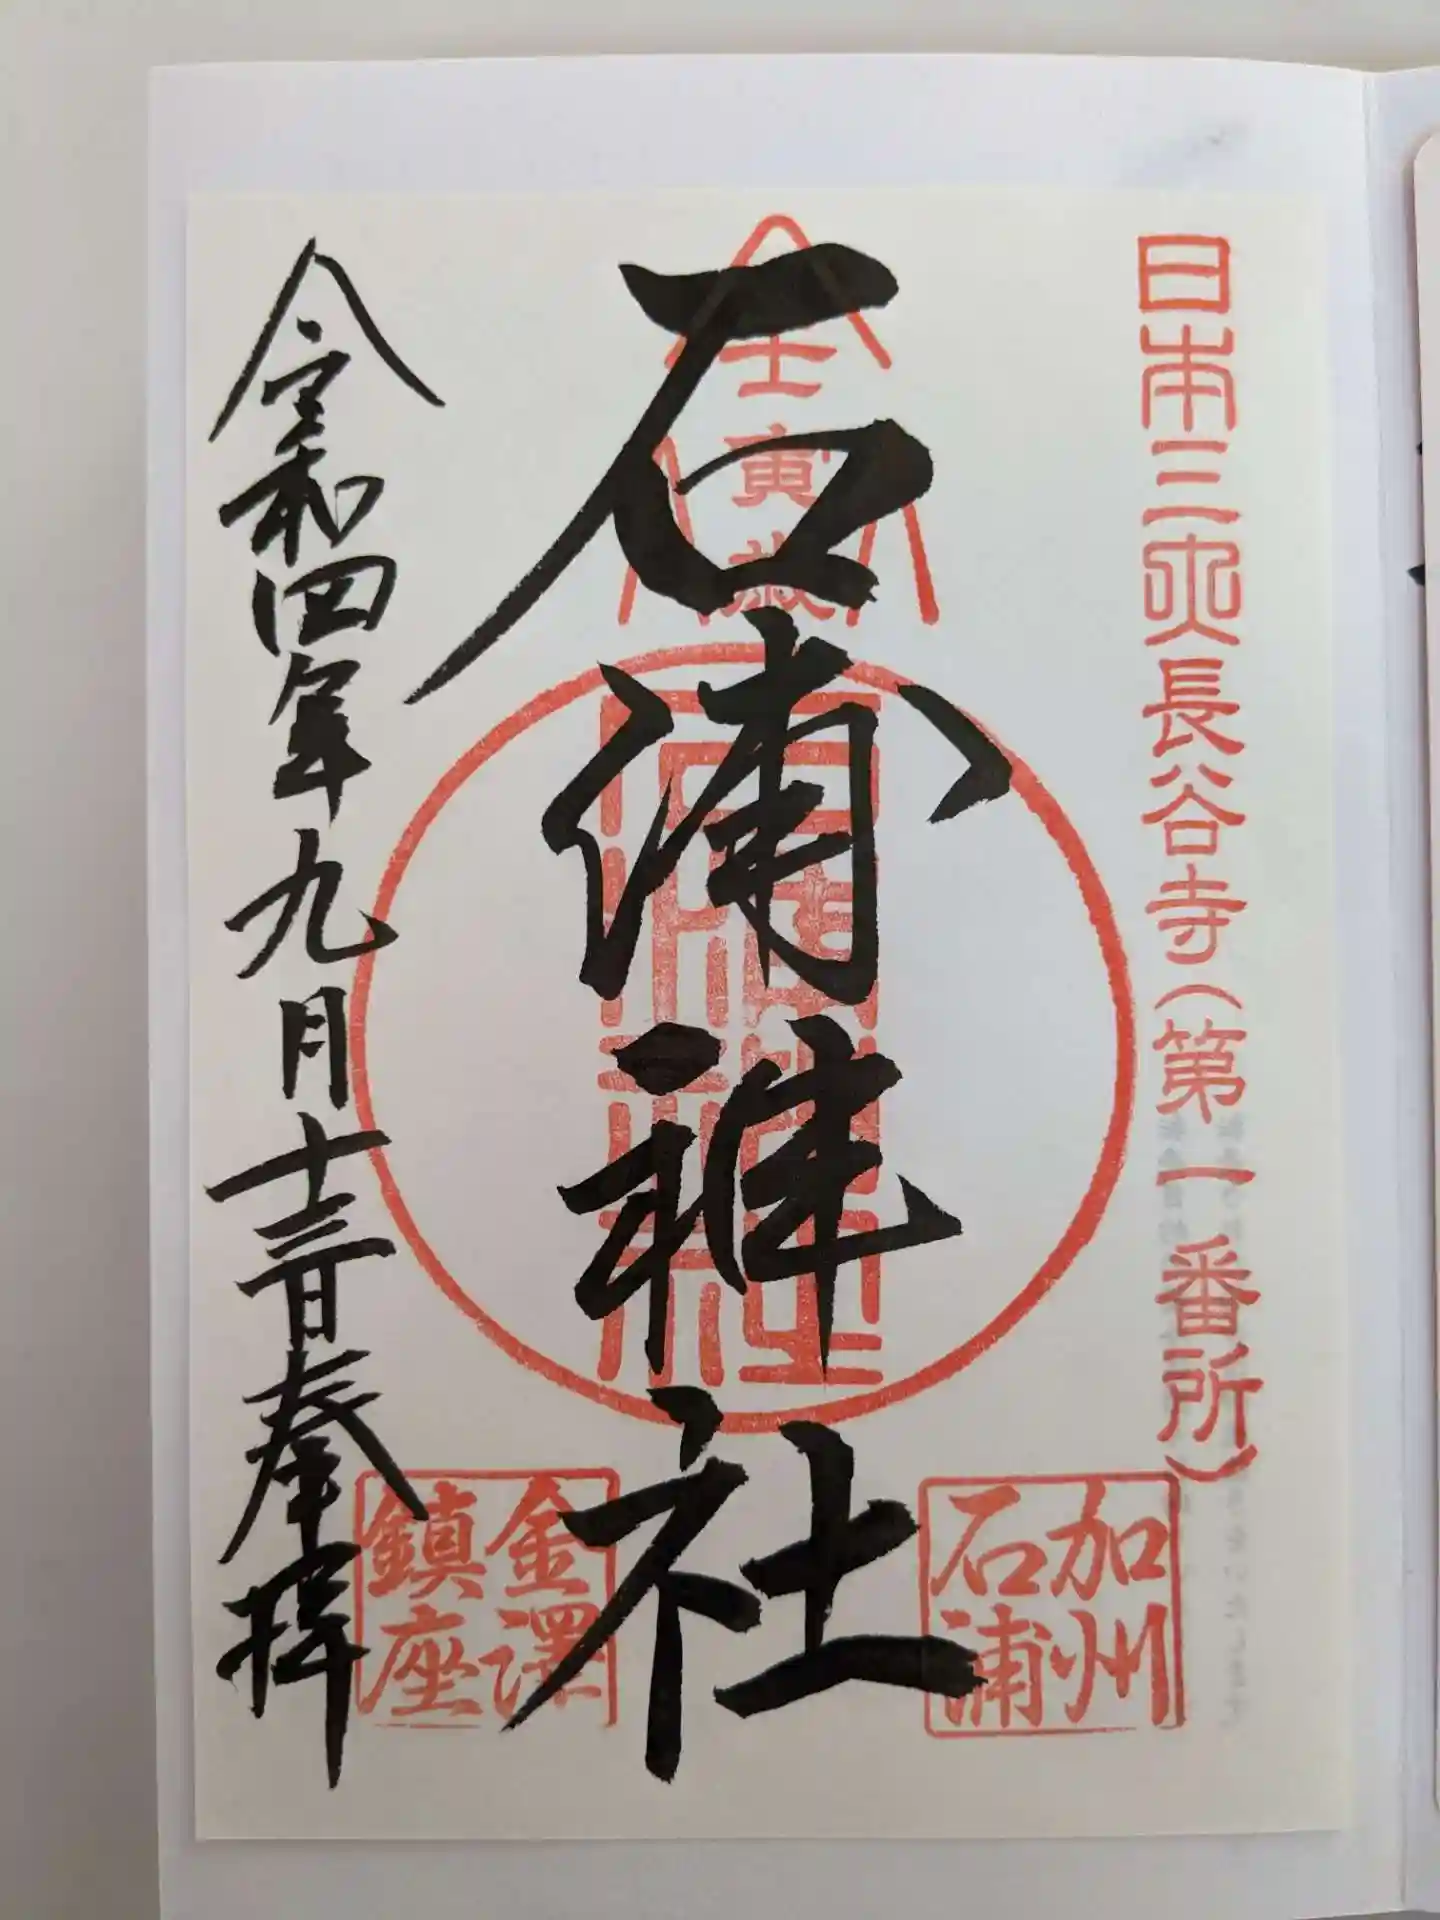 日本三所長谷寺(第一番所)
壬寅歳
石浦神社
加州
石浦
金澤
鎮座
令和四年九月十三日奉拝